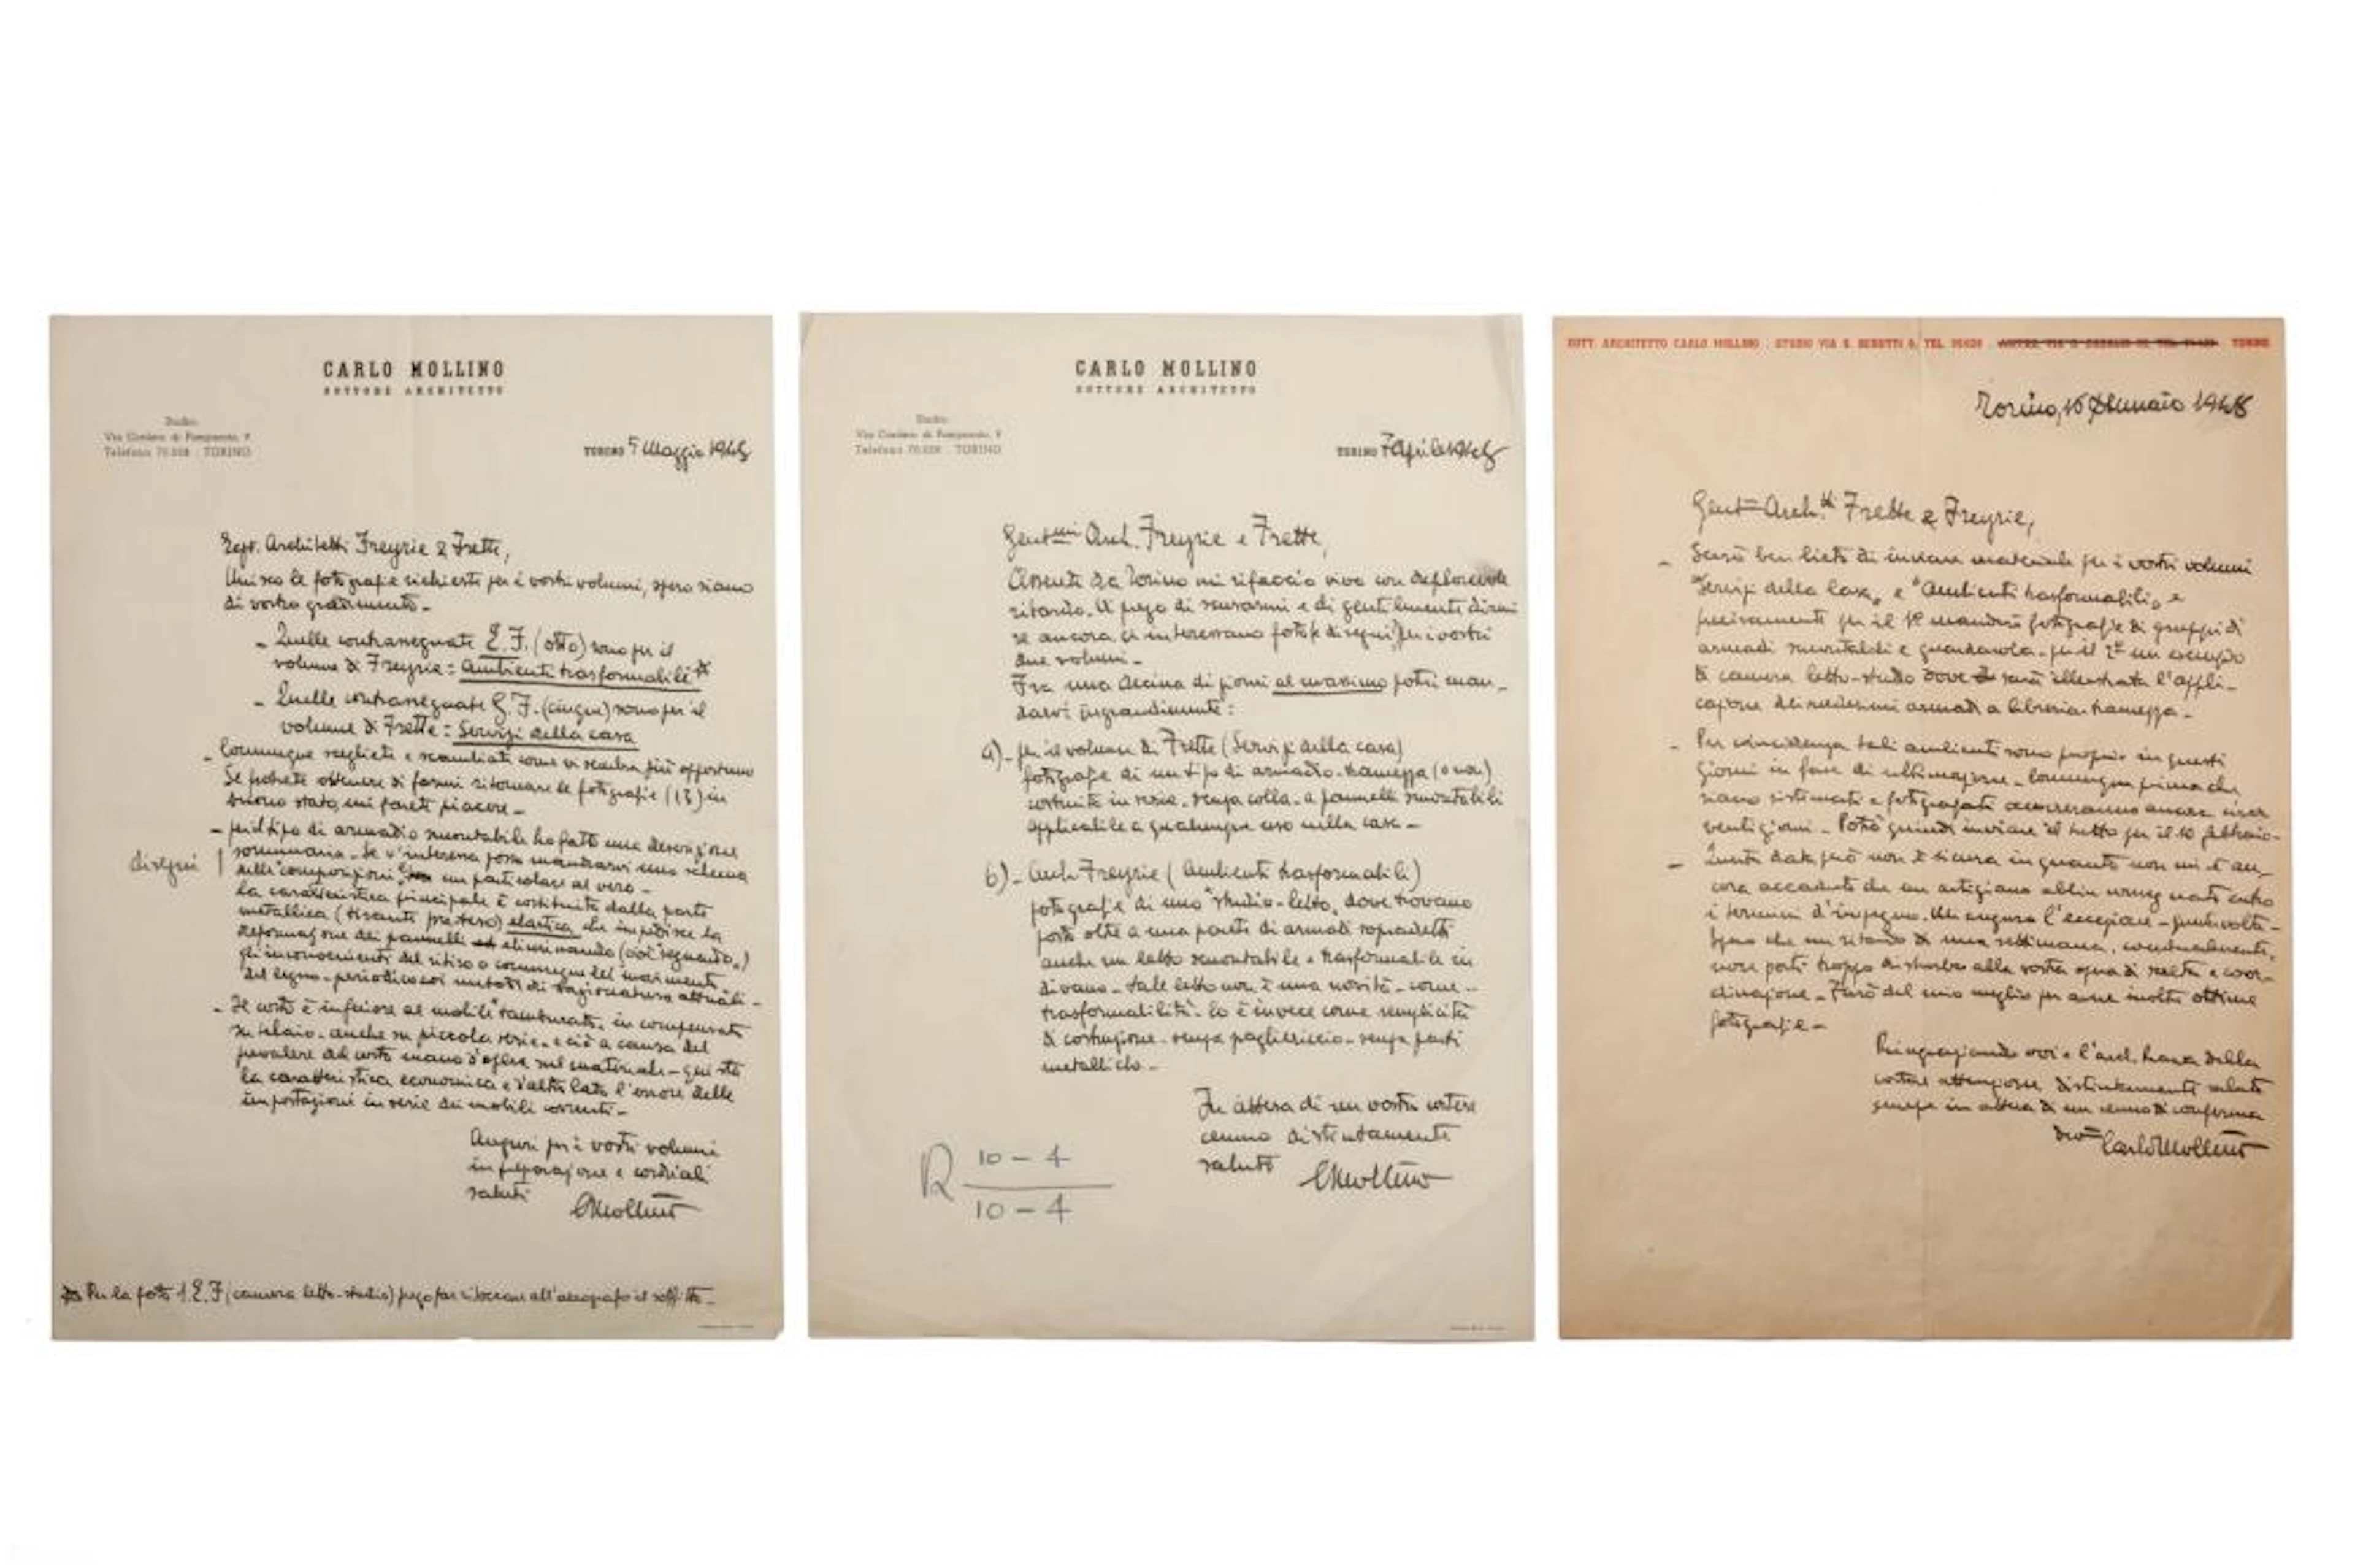 CARLO MOLLINO
DOTTORE ARCHITETTO
Studio:
Telefono TORINO
TORINO 5 Maggio
Egr. Architetti Freyrie e Frette,
Unisco le fotografie richieste per i vostri volumi, spero siano
di vostro gradimento -
- Quelle contrassegnate E.F. (otto) sono per il
volume di Freyrie = Ambienti trasformabili
- Quelle contrassegnate G.F. (cinque) sono per il
volume di Frette = Servizi della casa
- Comunque scegliete e scambiate come vi sembra più opportuno
Se potrete ottenere di farmi ritornare le fotografie (13) in
buono stato, mi farete piacere -
- per il tipo di armadio smontabile ho fatto una descrizione
sommaria - Se v'interessa posso mandarvi uno schema
disegni
delle composizioni, un particolare al vero -
la caratteristica principale è costituita dalla parte
metallica (tirante ) elastica che impedisce la
deformazione dei pannelli eliminando
gli inconvenienti del ritiro o comunque del movimento
del legno - periodico coi metodi di stagionatura attuali -
- Il costo è inferiore al mobile "tamburato" in compensato
su telaio - anche su piccola serie - e ciò a causa del
prevalere del costo mano d'opera sul materiale - qui sta
la caratteristica economica e d'altro lato l'errore delle
impostazioni in serie dei mobili correnti -
Auguri per i vostri volumi
in preparazione e cordiali
saluti
CMollino
Per la foto 1 E.F (camera letto-studio) prego far ritoccare all'aerografo il soffitto -
CARLO MOLLINO
DOTTORE ARCHITETTO
Studio:
Telefono TORINO
TORINO 7 Aprile
Gent.mi Arch. Freyrie e Frette,
Assente da Torino mi rifaccio vivo con deplorevole
ritardo. Vi prego di scusarmi e di gentilmente dirmi
se ancora vi interessano foto e disegni per i vostri
due volumi -
Fra una decina di giorni al massimo potrei man-
darvi ingrandimenti:
a) - per il volume di Frette (Servizi della casa)
fotografie di un tipo di armadio-tramezza (o no)
costruito in serie - senza colla - a pannelli smontabili
applicabile a qualunque uso nella casa -
b) - Arch Freyrie (Ambienti trasformabili)
fotografie di uno "studio-letto" dove trovano
posto oltre a una parete di armadi sopradetti
anche un letto smontabile e trasformabile in
divano - tale letto non è una novità - come -
trasformabilità - lo è invece come semplicità
di costruzione - senza pagliericcio - senza parti
metalliche -
In attesa di un vostro cortese
cenno distintamente
saluto
CMollino
R 10 - 4
10 - 4
DOTT. ARCHITETTO CARLO MOLLINO . STUDIO VIA TEL. TORINO
Torino, 16 Gennaio 1948
Gent. Arch.tti Frette e Freyrie,
- Sarò ben lieto di inviare materiale per i vostri volumi
"Servizi della Casa" e "Ambienti trasformabili" e
precisamente per il 1º manderò fotografie di gruppi di
armadi smontabili e guardaroba - per il 2º un esempio
di camera letto-studio dove sarà illustrata l'appli-
cazione dei medesimi armadi a libreria-tramezza -
- Per coincidenza tali ambienti sono proprio in questi
giorni in fase di ultimazione - Comunque prima che
siano sistemati e fotografati occorreranno ancora circa
venti giorni - Potrò quindi inviare il tutto per il 10 febbraio -
- Questa data però non è sicura in quanto non mi è an-
cora accaduto che un artigiano abbia consegnato entro
i termini d'impegno. Mi auguro l'eccezione - questa volta -
Spero che un ritardo di una settimana, eventualmente,
non porti troppo disturbo alla vostra opera di scelta e coor-
dinazione - Farò del mio meglio per avere inoltre ottime
fotografie -
Ringraziando voi e l'arch. della
cortese attenzione, distintamente saluto
sempre in attesa di un cenno di conferma
Carlo Mollino